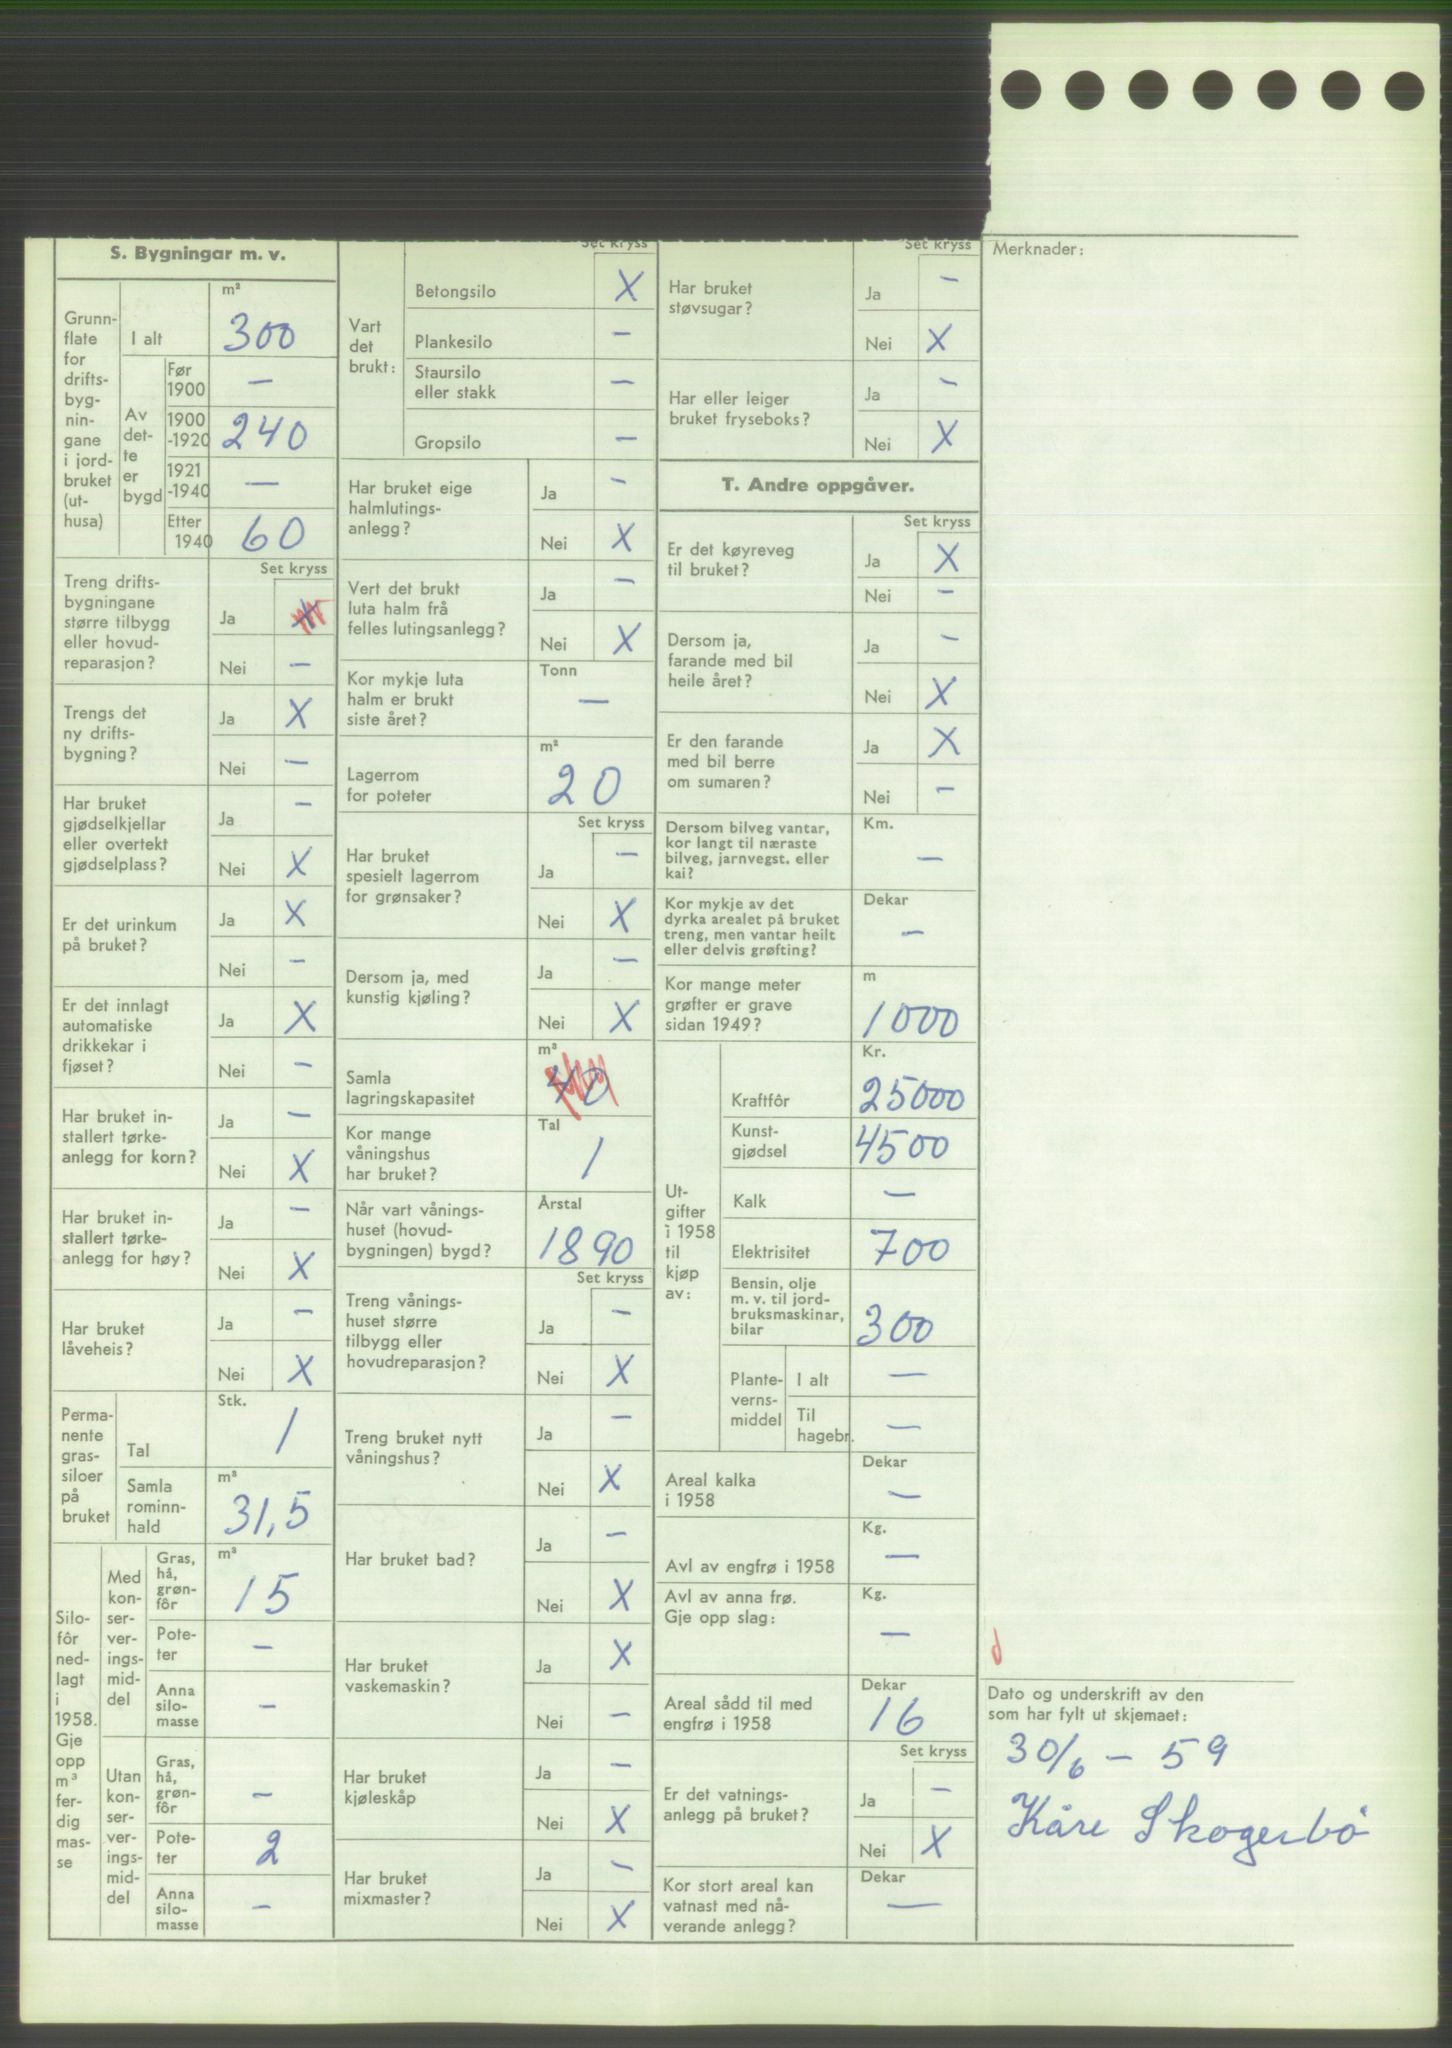 S. Bygningar m. v.
Grunn-
flate
for
drifts-
byg-
nin-
gane
i jord-
bruket
(ut-
husa)
m²
I alt
300
Av
det-
te
er
bygd
Før
1900
—
1900
-1920
240
1921
-1940
—
Etter
1940
60
Set kryss
Treng drifts-
bygningane
større tilbygg
eller hovud-
reparasjon?
Ja
X
Nei
—
Trengs det
ny drifts-
bygning?
Ja
X
Nei
—
Har bruket
gjødselkjellar
eller overtekt
gjødselplass?
Ja
—
Nei
X
Er det urinkum
på bruket?
Ja
X
Nei
—
Er det innlagt
automatiske
drikkekar i
fjøset?
Ja
X
Nei
—
Har bruket in-
stallert tørke-
anlegg for korn?
Ja
—
Nei
X
Har bruket in-
stallert tørke-
anlegg for høy?
Ja
—
Nei
X
Har bruket
låveheis?
Ja
—
Nei
X
Perma-
nente
gras-
siloer
på
bruket
Stk.
Tal
1
Samla
rominn-
hald
m³
31,5
Silo-
fôr
ned-
lagt
i
1958.
Gje
opp
m³
fer-
dig
mas-
se
Med
kon-
ser-
ver-
ings-
mid-
del
Gras,
hå,
grøn-
fôr
m³
15
Pote-
ter
—
Anna
silo-
masse
—
Utan
kon-
ser-
ver-
ings-
mid-
del
Gras,
hå,
grøn-
fôr
—
Pote-
ter
2
Anna
silo-
masse
—
Set kryss
Vart
det
brukt:
Betongsilo
X
Plankesilo
—
Staursilo
eller stakk
—
Gropsilo
—
Har bruket eige
halmlutings-
anlegg?
Ja
—
Nei
X
Vert det brukt
luta halm frå
felles lutingsanlegg?
Ja
—
Nei
X
Kor mykje luta
halm er brukt
siste året?
Tonn
—
Lagerrom
for poteter
m²
20
Set kryss
Har bruket
spesielt lagerrom
for grønsaker?
Ja
—
Nei
X
Dersom ja, med
kunstig kjøling?
Ja
—
Nei
X
Samla
lagringskapasitet
m³
Kor mange
våningshus
har bruket?
Tal
1
Når vart vånings-
huset (hovud-
bygningen) bygd?
Årstal
1890
Set kryss
Treng vånings-
huset større
tilbygg eller
hovudreparasjon?
Ja
—
Nei
X
Treng bruket nytt
våningshus?
Ja
—
Nei
X
Har bruket bad?
Ja
—
Nei
X
Har bruket
vaskemaskin?
Ja
X
Nei
—
Har bruket
kjøleskåp
Ja
—
Nei
X
Har bruket
mixmaster?
Ja
—
Nei
X
Set kryss
Har bruket
støvsugar?
Ja
—
Nei
X
Har eller leiger
bruket fryseboks?
Ja
—
Nei
X
T. Andre oppgåver.
Set kryss
Er det køyreveg
til bruket?
Ja
X
Nei
—
Dersom ja,
farande med bil
heile året?
Ja
—
Nei
X
Er den farande
med bil berre
om sumaren?
Ja
X
Nei
—
Dersom bilveg vantar,
kor langt til næraste
bilveg, jarnvegst. eller
kai?
Km.
—
Kor mykje av det
dyrka arealet på bruket
treng, men vantar heilt
eller delvis grøfting?
Dekar
—
Kor mange meter
grøfter er grave
sidan 1949?
m
1000
Ut-
gifter
i 1958
til
kjøp
av:
Kr.
Kraftfôr
25000
Kunst-
gjødsel
4500
Kalk
—
Elektrisitet
700
Bensin, olje
m. v. til jord-
bruksmaskinar,
bilar
300
Plante-
verns-
middel
I alt
—
Til
hagebr.
—
Areal kalka
i 1958
Dekar
—
Avl av engfrø i 1958
Kg.
—
Avl av anna frø.
Gje opp slag:
Kg.
—
Areal sådd til med
engfrø i 1958
Dekar
16
Set kryss
Er det vatnings-
anlegg på bruket?
Ja
—
Nei
X
Kor stort areal kan
vatnast med nå-
verande anlegg?
Dekar
—
Merknader:
d
Dato og underskrift av den
som har fylt ut skjemaet:
30/6 - 59
Kåre Skogerbö